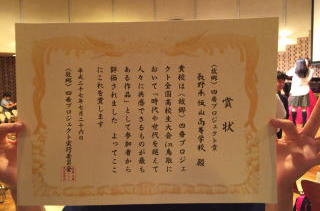 賞状
(故郷)四番プロジェクト賞
長野県坂山高等学校 殿
貴校は(故郷)四番プロジェ
クト全国高校生大会in鳥取に
おいて「時代や世代を超えて
人々に共感できるものが最も
ある作品」として参加者から
評価されました よってここ
にこれを賞します
平成二十七年七月二十六日
(故郷)四番プロジェクト実行委員会